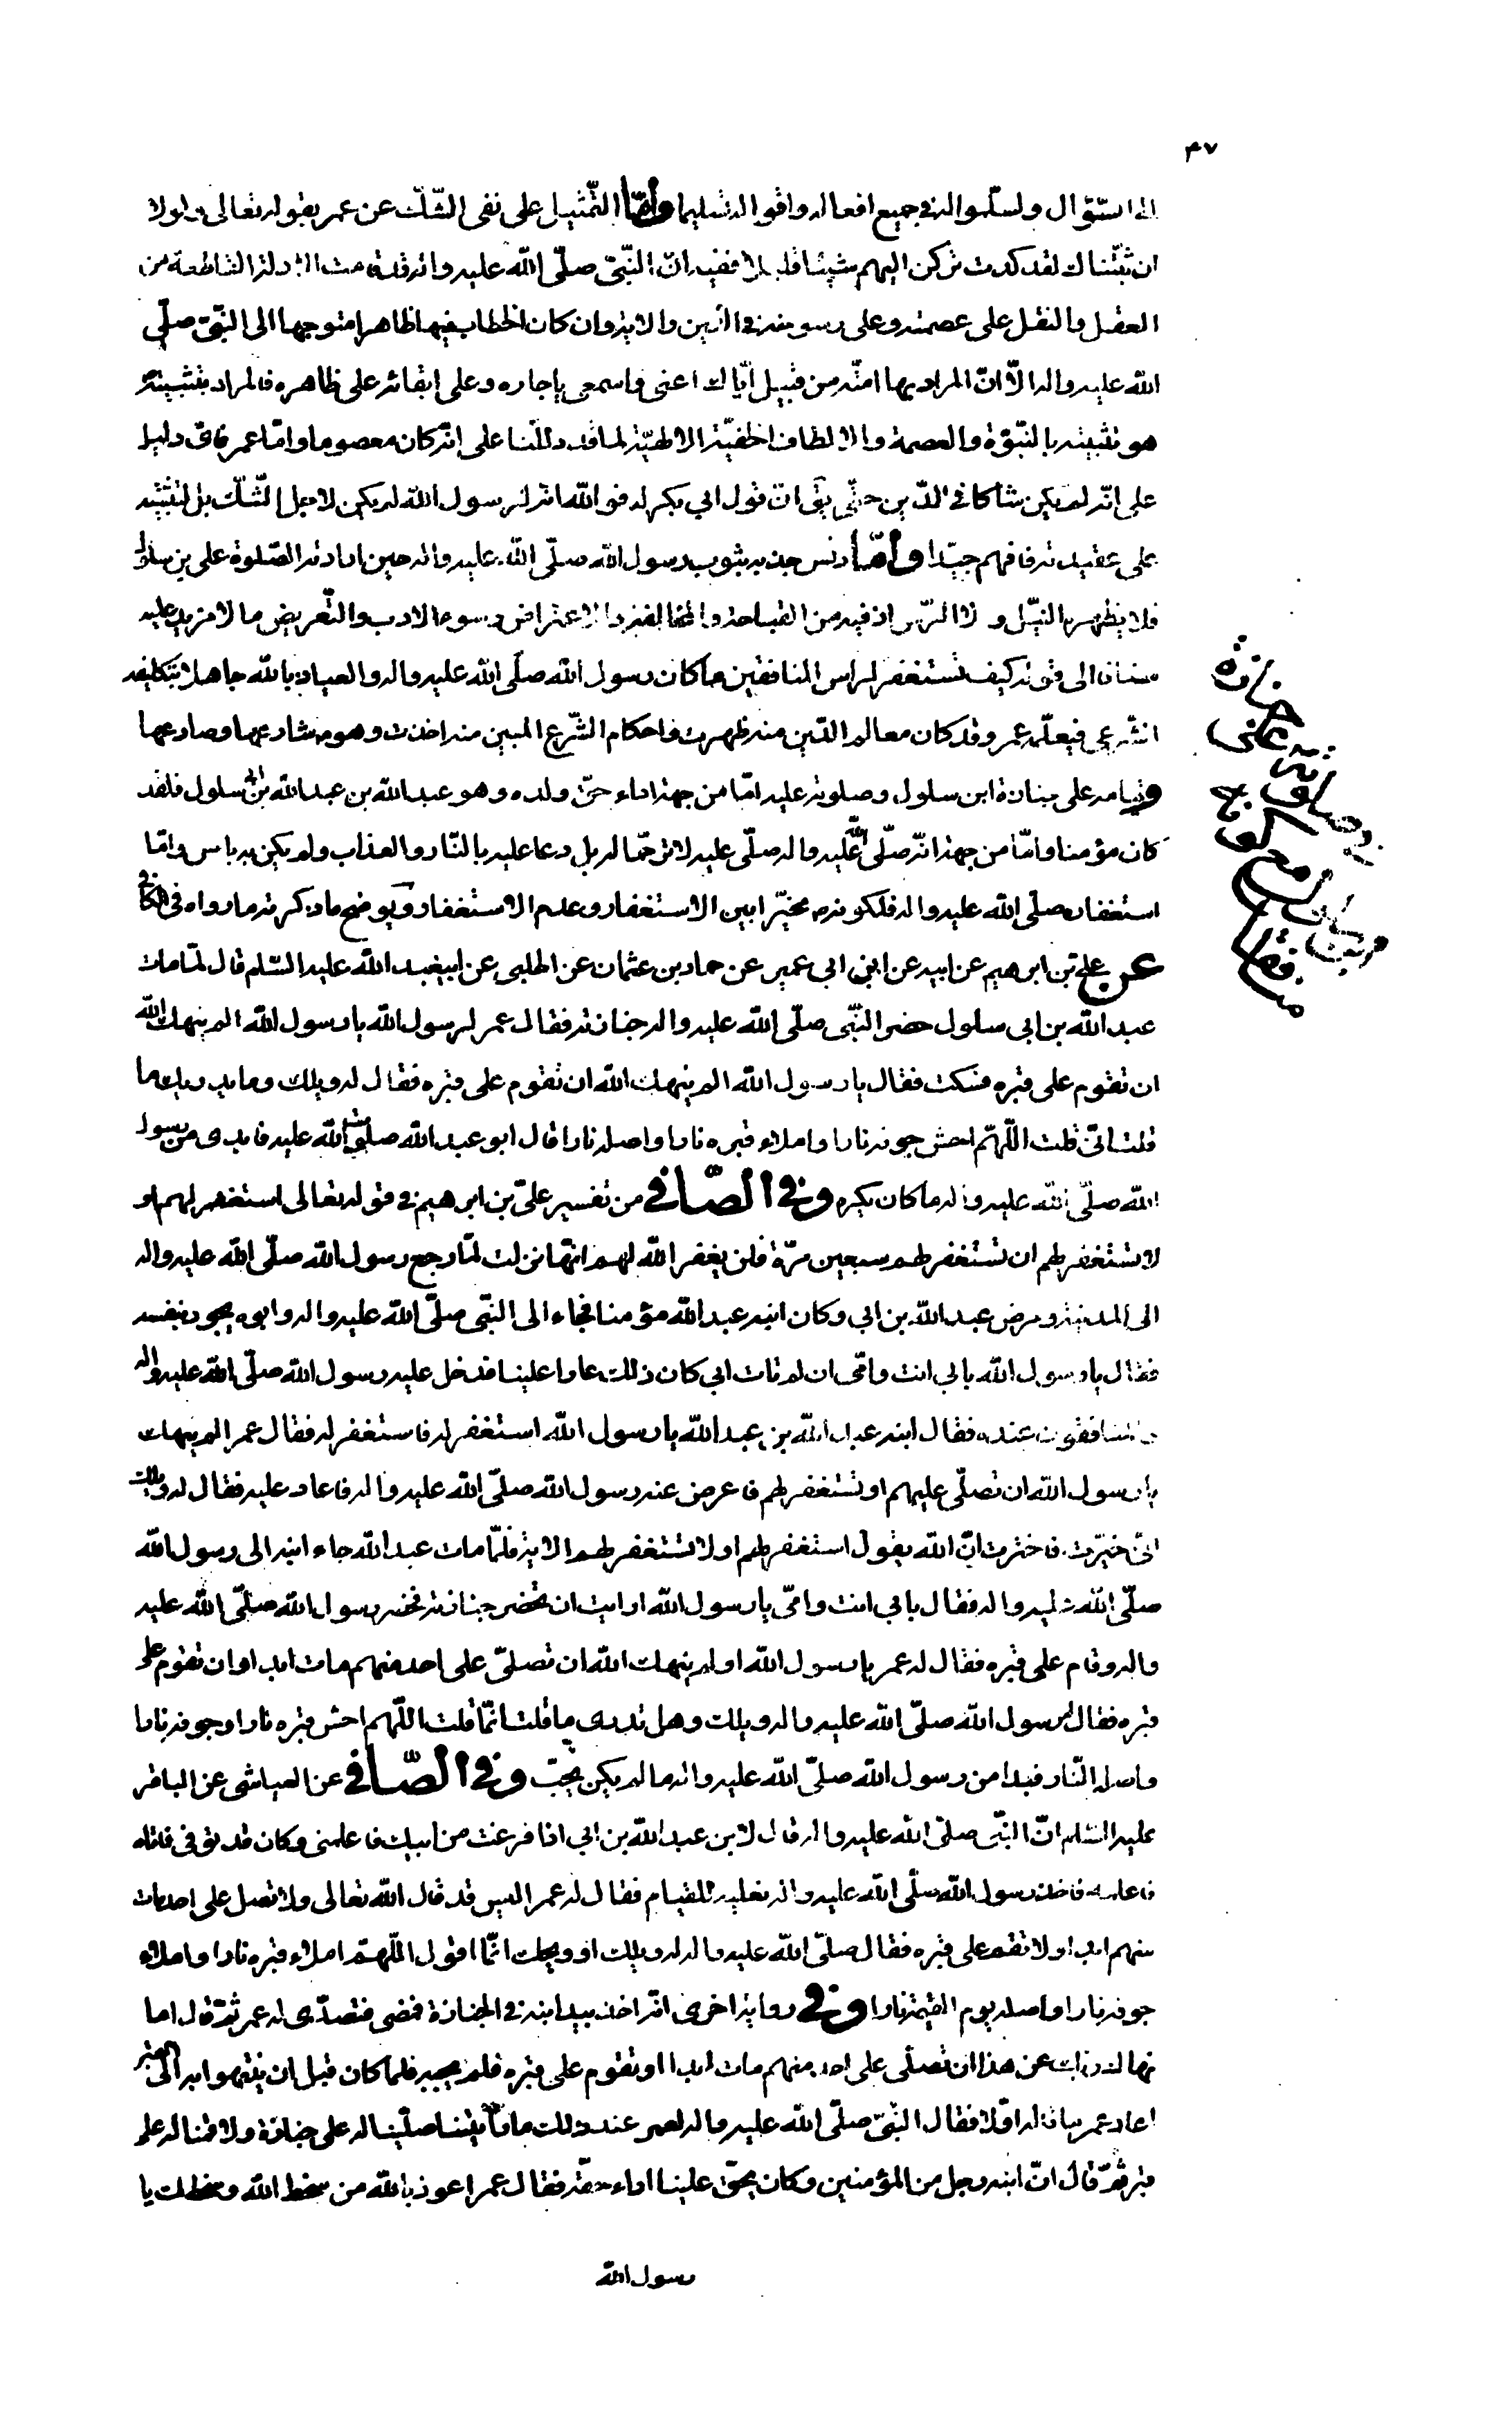 ۴۷
السّؤال ولسلّموا له فى جميع افعاله واقواله تسليما وأمّا التّمثيل على نفى الشّكّ عن عمر بقوله تعالى ولولا
ان ثبّتناك لقد كدت تركن اليهم شيئا قليلا ففيه انّ النّبىّ صلّى اللّه عليه واله قد قامت الادلة القاطعة من
العقل والنقل على عصمته وعلى رسوخه فى الدّين والاية وان كان الخطاب فيها ظاهرا متوجها الى النّبىّ صلّى
اللّه عليه واله الّا انّ المراد بها امّته من قبيل ايّاك اعنى واسمعى ياجاره وعلى ابقائه على ظاهره فالمراد بتثبيته
هو تثبيته بالنّبوّة والعصمة والالطاف الخفيّة الالهيّة لما قد دللّنا على انّه كان معصوما وامّا عمر فاىّ دليل
على انّه لم يكن شاكا فى الدّين حتّى يق انّ قول ابى بكر له فو اللّه انّه لرسول اللّه لم يكن لاجل الشّكّ بل لتثبيته
على عقيدته فافهم جيّدا وأمّا دنس جذبه بثوب رسول اللّه صلّى اللّه عليه واله حين ارادته الصّلوة على بن سلول
فلا يطهره النّيل ولا الزّيل اذ فيه من القباحة والمخالفة والاعتراض وسوء الادب والتّعريض ما لا مزيد عليه
مضافا الى قوله كيف تستغفر لراس المنافقين ما كان رسول اللّه صلّى اللّه عليه واله والعياذ باللّه جاهلا بتكليفه
الشّرعى فيعلّمه عمر وقد كان معالم الدّين منه ظهرت واحكام الشّرع المبين منه اخذت وهو مشارعها وصادعها
وقيامه على جنازة ابن سلول وصلوته عليه امّا من جهة اداء حقّ ولده وهو عبد اللّه بن عبد اللّه بن ابى سلول فلقد
كان مؤمنا وامّا من جهة انّه صلّى اللّه عليه واله صلّى عليه لا ترحّما له بل دعا عليه بالنّار والعذاب ولم يكن به باس وامّا
استغفاره صلّى اللّه عليه واله فلكونه مخيّرا بين الاستغفار وعدم الاستغفار ويوضح ما ذكرته ما رواه فى الكافى
عن علىّ بن ابرهيم عن ابيه عن ابن ابى عمير عن حماد بن عثمان عن الحلبى عن ابيعبد اللّه عليه السّلم قال لمّا مات
عبد اللّه بن ابى سلول حضر النّبى صلّى اللّه عليه واله جنازته فقال عمر لرسول اللّه يا رسول اللّه الم ينهك اللّه
ان تقوم على قبره فسكت فقال يا رسول اللّه الم ينهك اللّه ان تقوم على قبره فقال له ويلك وما يدريك ما
قلت انّى قلت اللّهمّ احش جوفه نارا واملاء قبره نارا واصله نارا قال ابو عبد اللّه صلوات اللّه عليه فابدى من رسول
اللّه صلّى اللّه عليه واله ما كان يكره وفى الصّافى من تفسير علىّ بن ابرهيم فى قوله تعالى استغفر لهم او
لا تستغفر لهم ان تستغفر لهم سبعين مرّة فلن يغفر اللّه لهم انّها نزلت لمّا رجع رسول اللّه صلّى اللّه عليه واله
الى المدينة ومرض عبد اللّه بن ابى وكان ابنه عبد اللّه مؤمنا فجاء الى النّبى صلّى اللّه عليه واله وابوه يجود بنفسه
فقال يا رسول اللّه بابى انت وامّى ان لم تات ابى كان ذلك عارا علينا فدخل عليه رسول اللّه صلّى اللّه عليه واله
والمنافقون عنده فقال ابنه عبد اللّه بن عبد اللّه يا رسول اللّه استغفر له فاستغفر له فقال عمر الم ينهك
يا رسول اللّه ان تصلّى عليهم او تستغفر لهم فاعرض عنه رسول اللّه صلّى اللّه عليه واله فاعاد عليه فقال له ويلك
انّى خيّرت فاخترت انّ اللّه يقول استغفر لهم او لا تستغفر لهم الاية فلمّا مات عبد اللّه جاء ابنه الى رسول اللّه
صلّى اللّه عليه واله فقال بابى انت وامّى يا رسول اللّه ارايت ان تحضر جنازته فحضره رسول اللّه صلّى اللّه عليه
واله وقام على قبره فقال له عمر يا رسول اللّه اولم ينهك اللّه ان تصلّى على احد منهم مات ابدا وان تقوم على
قبره فقال رسول اللّه صلّى اللّه عليه واله ويلك وهل تدرى ما قلت انّما قلت اللّهم احش قبره نارا وجوفه نارا
واصله النّار فبدا من رسول اللّه صلّى اللّه عليه واله ما لم يكن يحبّ وفى الصّافى عن العياشى عن الباقر
عليه السّلم انّ النّبى صلّى اللّه عليه واله قال لابن عبد اللّه بن ابى اذا فرغت من ابيك فاعلمنى وكان قد توفى فاتاه
فاعلمه فاخذ رسول اللّه صلّى اللّه عليه واله نعليه للقيام فقال له عمر اليس قد قال اللّه تعالى ولا تصل على احد مات
منهم ابدا ولا تقم على قبره فقال صلّى اللّه عليه واله له ويلك او ويحك انّما اقول اللّهمّ املاء قبره نارا واملاء
جوفه نارا واصله يوم القيمة نارا وفى رواية اخرى انّه اخذ بيد ابنه فى الجنازة فمضى فتصدّى له عمر ثمّ قال اما
نهاك ربّك عن هذا ان تصلّى على احد منهم مات ابدا او تقوم على قبره فلم يجبه فلما كان قبل ان ينتهوا به الى القبر
اعاد عمر ما قاله اوّلا فقال النّبىّ صلّى اللّه عليه واله لعمر عند ذلك ما رأيتنا صلّينا له على جنازة ولا قمنا له على
قبر ثمّ قال انّ ابنه رجل من المؤمنين وكان يحقّ علينا اداء حقّه فقال عمر اعوذ باللّه من سخط اللّه وسخطك يا
رسول اللّه
وصلوته على
جنازة
منافقا